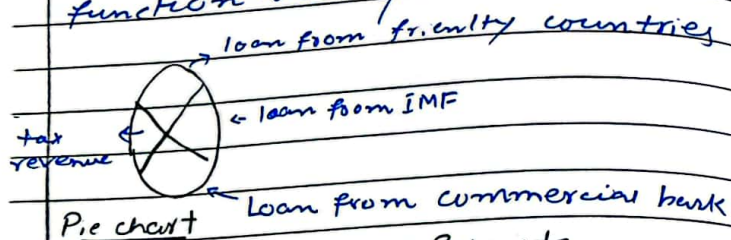 function
loan from frienlty countries
loan from IMF
tax
revenue
Loan from commercial bank
Pie chart